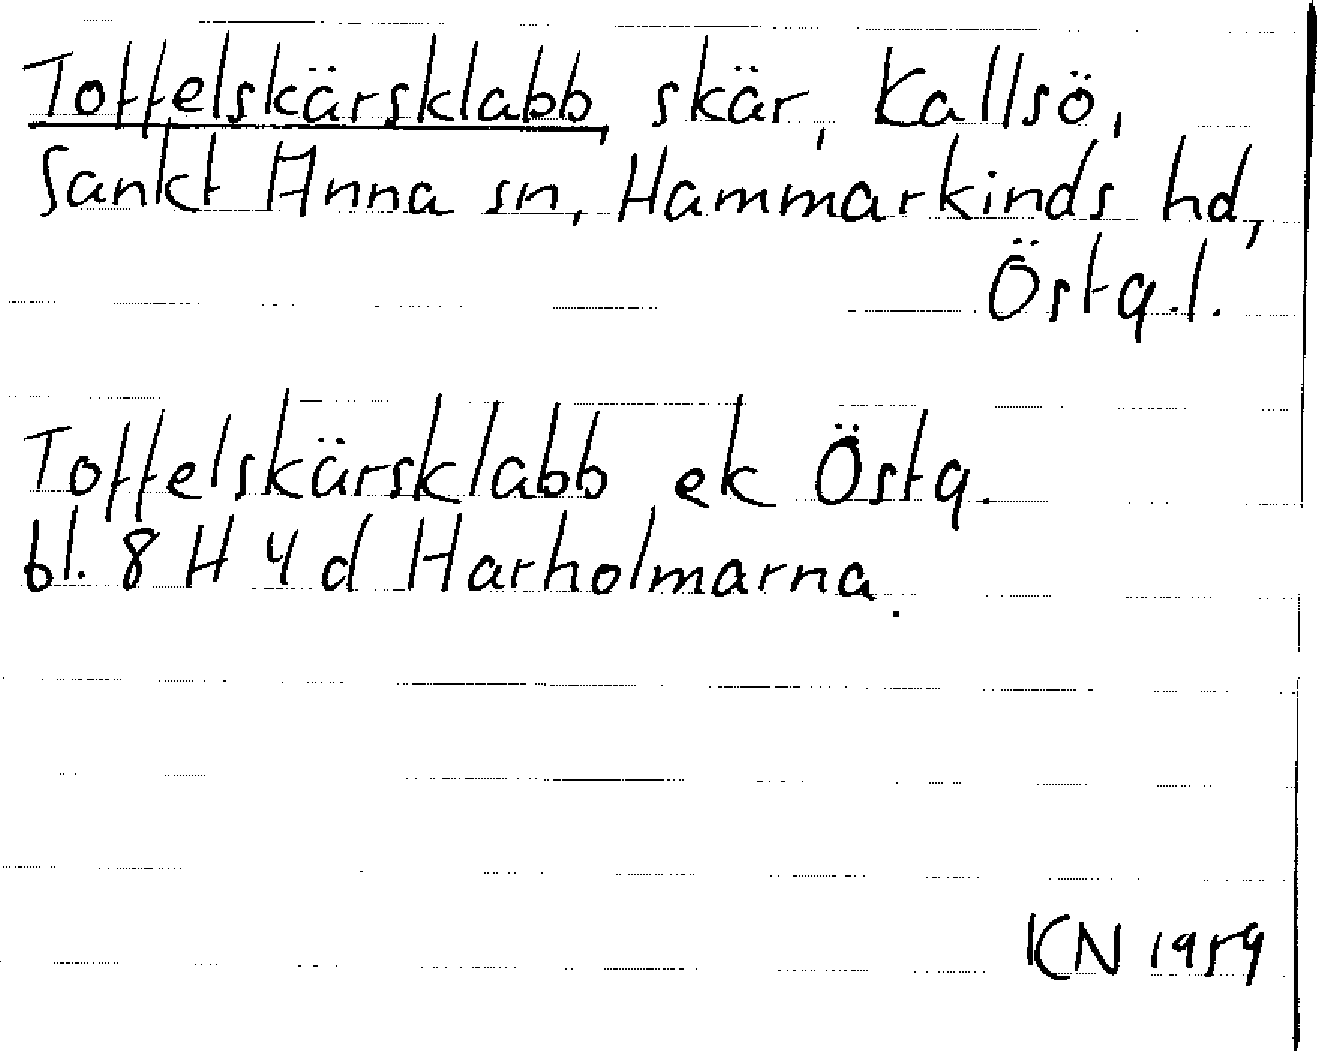 Toffelskärsklabb, skär, Kallsö,
Sankt Anna sn, Hammarkinds hd,
Östg.l.
Toffelskärsklabb ek Östg.
bl. 8 H 4 d Harholmarna.
KN 1959